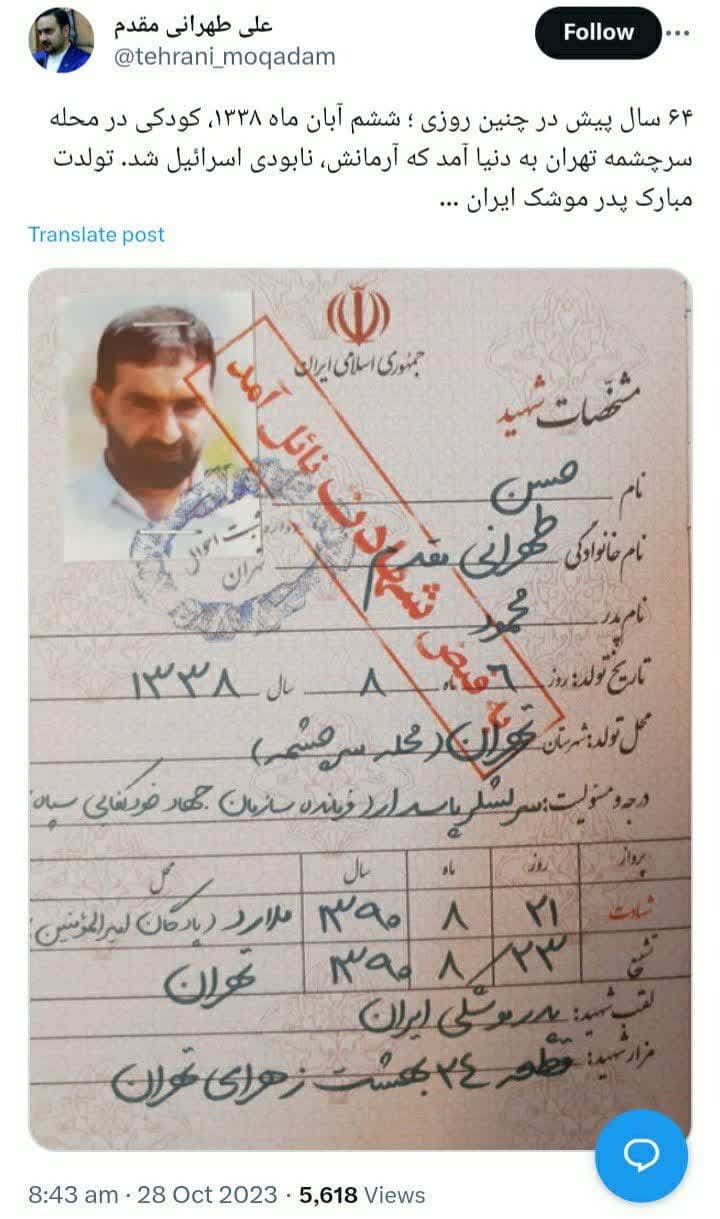 علی طهرانی مقدم
@tehrani_moqadam
Follow
۶۴ سال پیش در چنین روزی ؛ ششم آبان ماه ۱۳۳۸، کودکی در محله
سرچشمه تهران به دنیا آمد که آرمانش، نابودی اسرائیل شد. تولدت
مبارک پدر موشک ایران ...
Translate post
جمهوری اسلامی ایران
مشخصات شهید
به فیض شهادت نائل آمد
نام حسن
نام خانوادگی طهرانی مقدم
نام پدر محمود
تاریخ تولد: روز ٦ ماه ٨ سال ١٣٣٨
محل تولد: شهرستان تهران (محله سرچشمه)
درجه و مسئولیت: سرلشگر پاسدار / فرمانده سازمان جهاد خودکفایی سپاه
پرواز روز ماه سال محل
شهادت ٢١ ٨ ١٣٩٠ ملارد (پادگان امیرالمؤمنین)
تشییع ٢٣ ٨ ١٣٩٠ تهران
لقب شهید: پدر موشکی ایران
مزار شهید: قطعه ٢٤ بهشت زهرای تهران
8:43 am · 28 Oct 2023 · 5,618 Views